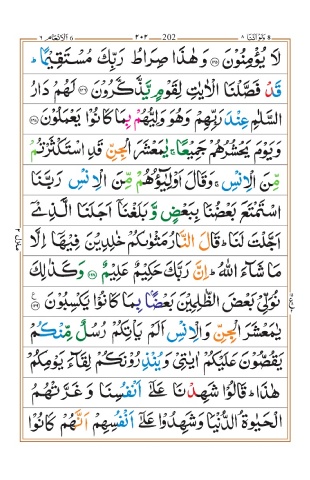 ٨ وَلَوْ اَنَّنَا ٨ 202 ٢٠٢ اَلْاَنْعَام ٦ 6
لَا يُؤْمِنُوْنَ ﴿١٢٥﴾ وَهٰذَا صِرَاطُ رَبِّكَ مُسْتَقِيْمًا ؕ
قَدْ فَصَّلْنَا الْاٰيٰتِ لِقَوْمٍ يَّذَّكَّرُوْنَ ﴿١٢٦﴾ لَهُمْ دَارُ
السَّلٰمِ عِنْدَ رَبِّهِمْ وَهُوَ وَلِيُّهُمْ بِمَا كَانُوْا يَعْمَلُوْنَ ﴿١٢٧﴾
وَيَوْمَ يَحْشُرُهُمْ جَمِيْعًا ۚ يٰمَعْشَرَ الْجِنِّ قَدِ اسْتَكْثَرْتُمْ
مِّنَ الْاِنْسِ ۚ وَقَالَ اَوْلِيٰٓؤُهُمْ مِّنَ الْاِنْسِ رَبَّنَا
اسْتَمْتَعَ بَعْضُنَا بِبَعْضٍ وَّبَلَغْنَاۤ اَجَلَنَا الَّذِيْۤ
اَجَّلْتَ لَنَا ؕ قَالَ النَّارُ مَثْوٰىكُمْ خٰلِدِيْنَ فِيْهَاۤ اِلَّا
مَا شَآءَ اللّٰهُ ؕ اِنَّ رَبَّكَ حَكِيْمٌ عَلِيْمٌ ﴿١٢٨﴾ وَكَذٰلِكَ
نُوَلِّيْ بَعْضَ الظّٰلِمِيْنَ بَعْضًاۢ بِمَا كَانُوْا يَكْسِبُوْنَ ﴿١٢٩﴾
يٰمَعْشَرَ الْجِنِّ وَالْاِنْسِ اَلَمْ يَاْتِكُمْ رُسُلٌ مِّنْكُمْ
يَقُصُّوْنَ عَلَيْكُمْ اٰيٰتِيْ وَيُنْذِرُوْنَكُمْ لِقَآءَ يَوْمِكُمْ
هٰذَا ؕ قَالُوْا شَهِدْنَا عَلٰۤى اَنْفُسِنَا وَغَرَّتْهُمُ
الْحَيٰوةُ الدُّنْيَا وَشَهِدُوْا عَلٰۤى اَنْفُسِهِمْ اَنَّهُمْ كَانُوْا